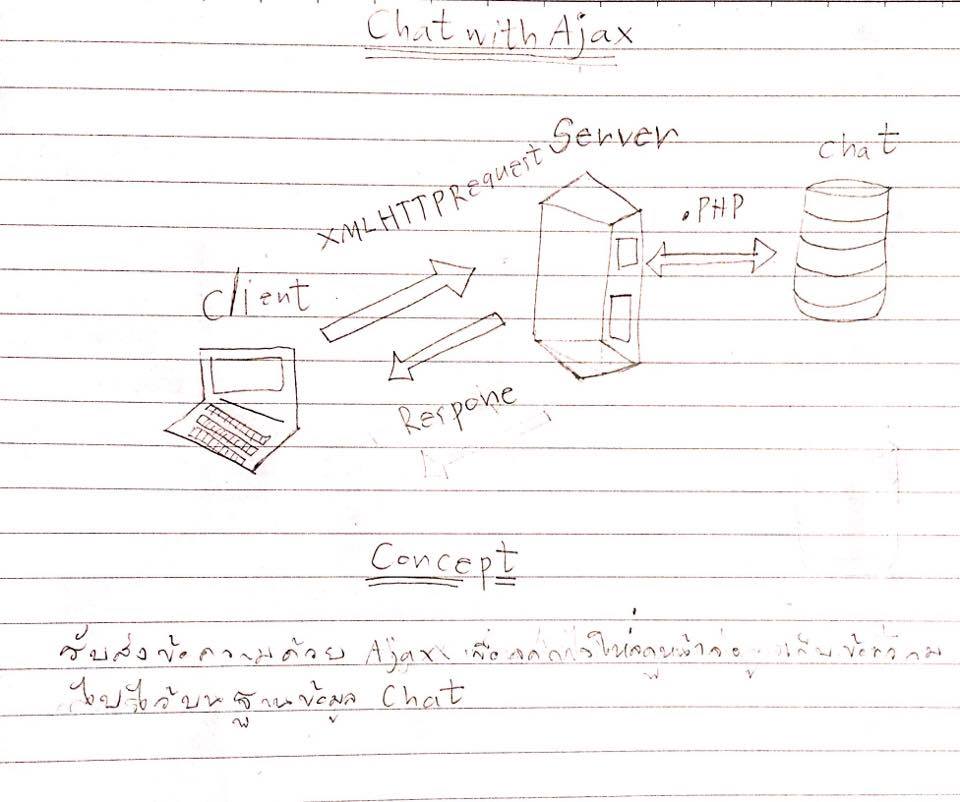 Chat with Ajax
Server
chat
XMLHTTPRequest
.PHP
Client
Respone
Concept
รับส่งข้อความด้วย Ajax เพื่อลดการโหลดหน้าจอ เก็บข้อความ
ไปไว้บนฐานข้อมูล Chat